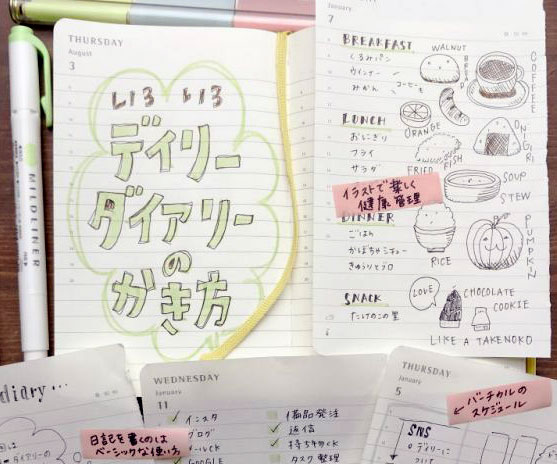 THURSDAY
August
3
いろいろ
デイリー
ダイアリー
の
かき方
MILDLINER
January
7
BREAKFAST
くるみパン
ウインナー
みかん
コーヒーも
WALNUT
BREAD
COFFEE
ORANGE
LUNCH
おにぎり
フライ
サラダ
ONIGIRI
FRIED
FISH
イラストで楽しく
健康管理
SOUP
STEW
DINNER
ごはん
かぼちゃシチュー
RICE
PUMPKIN
SNACK
たけのこの里
LOVE
CHOCOLATE
COOKIE
LIKE A TAKENOKO
diary...
日記を書くのは
ベーシックな使い方
WEDNESDAY
January
11
インスタ
ブログ
GOOGLE
備品発注
返信
持ち物CK
タスク整理
THURSDAY
January
5
バーチカルの
スケジュール
SNS